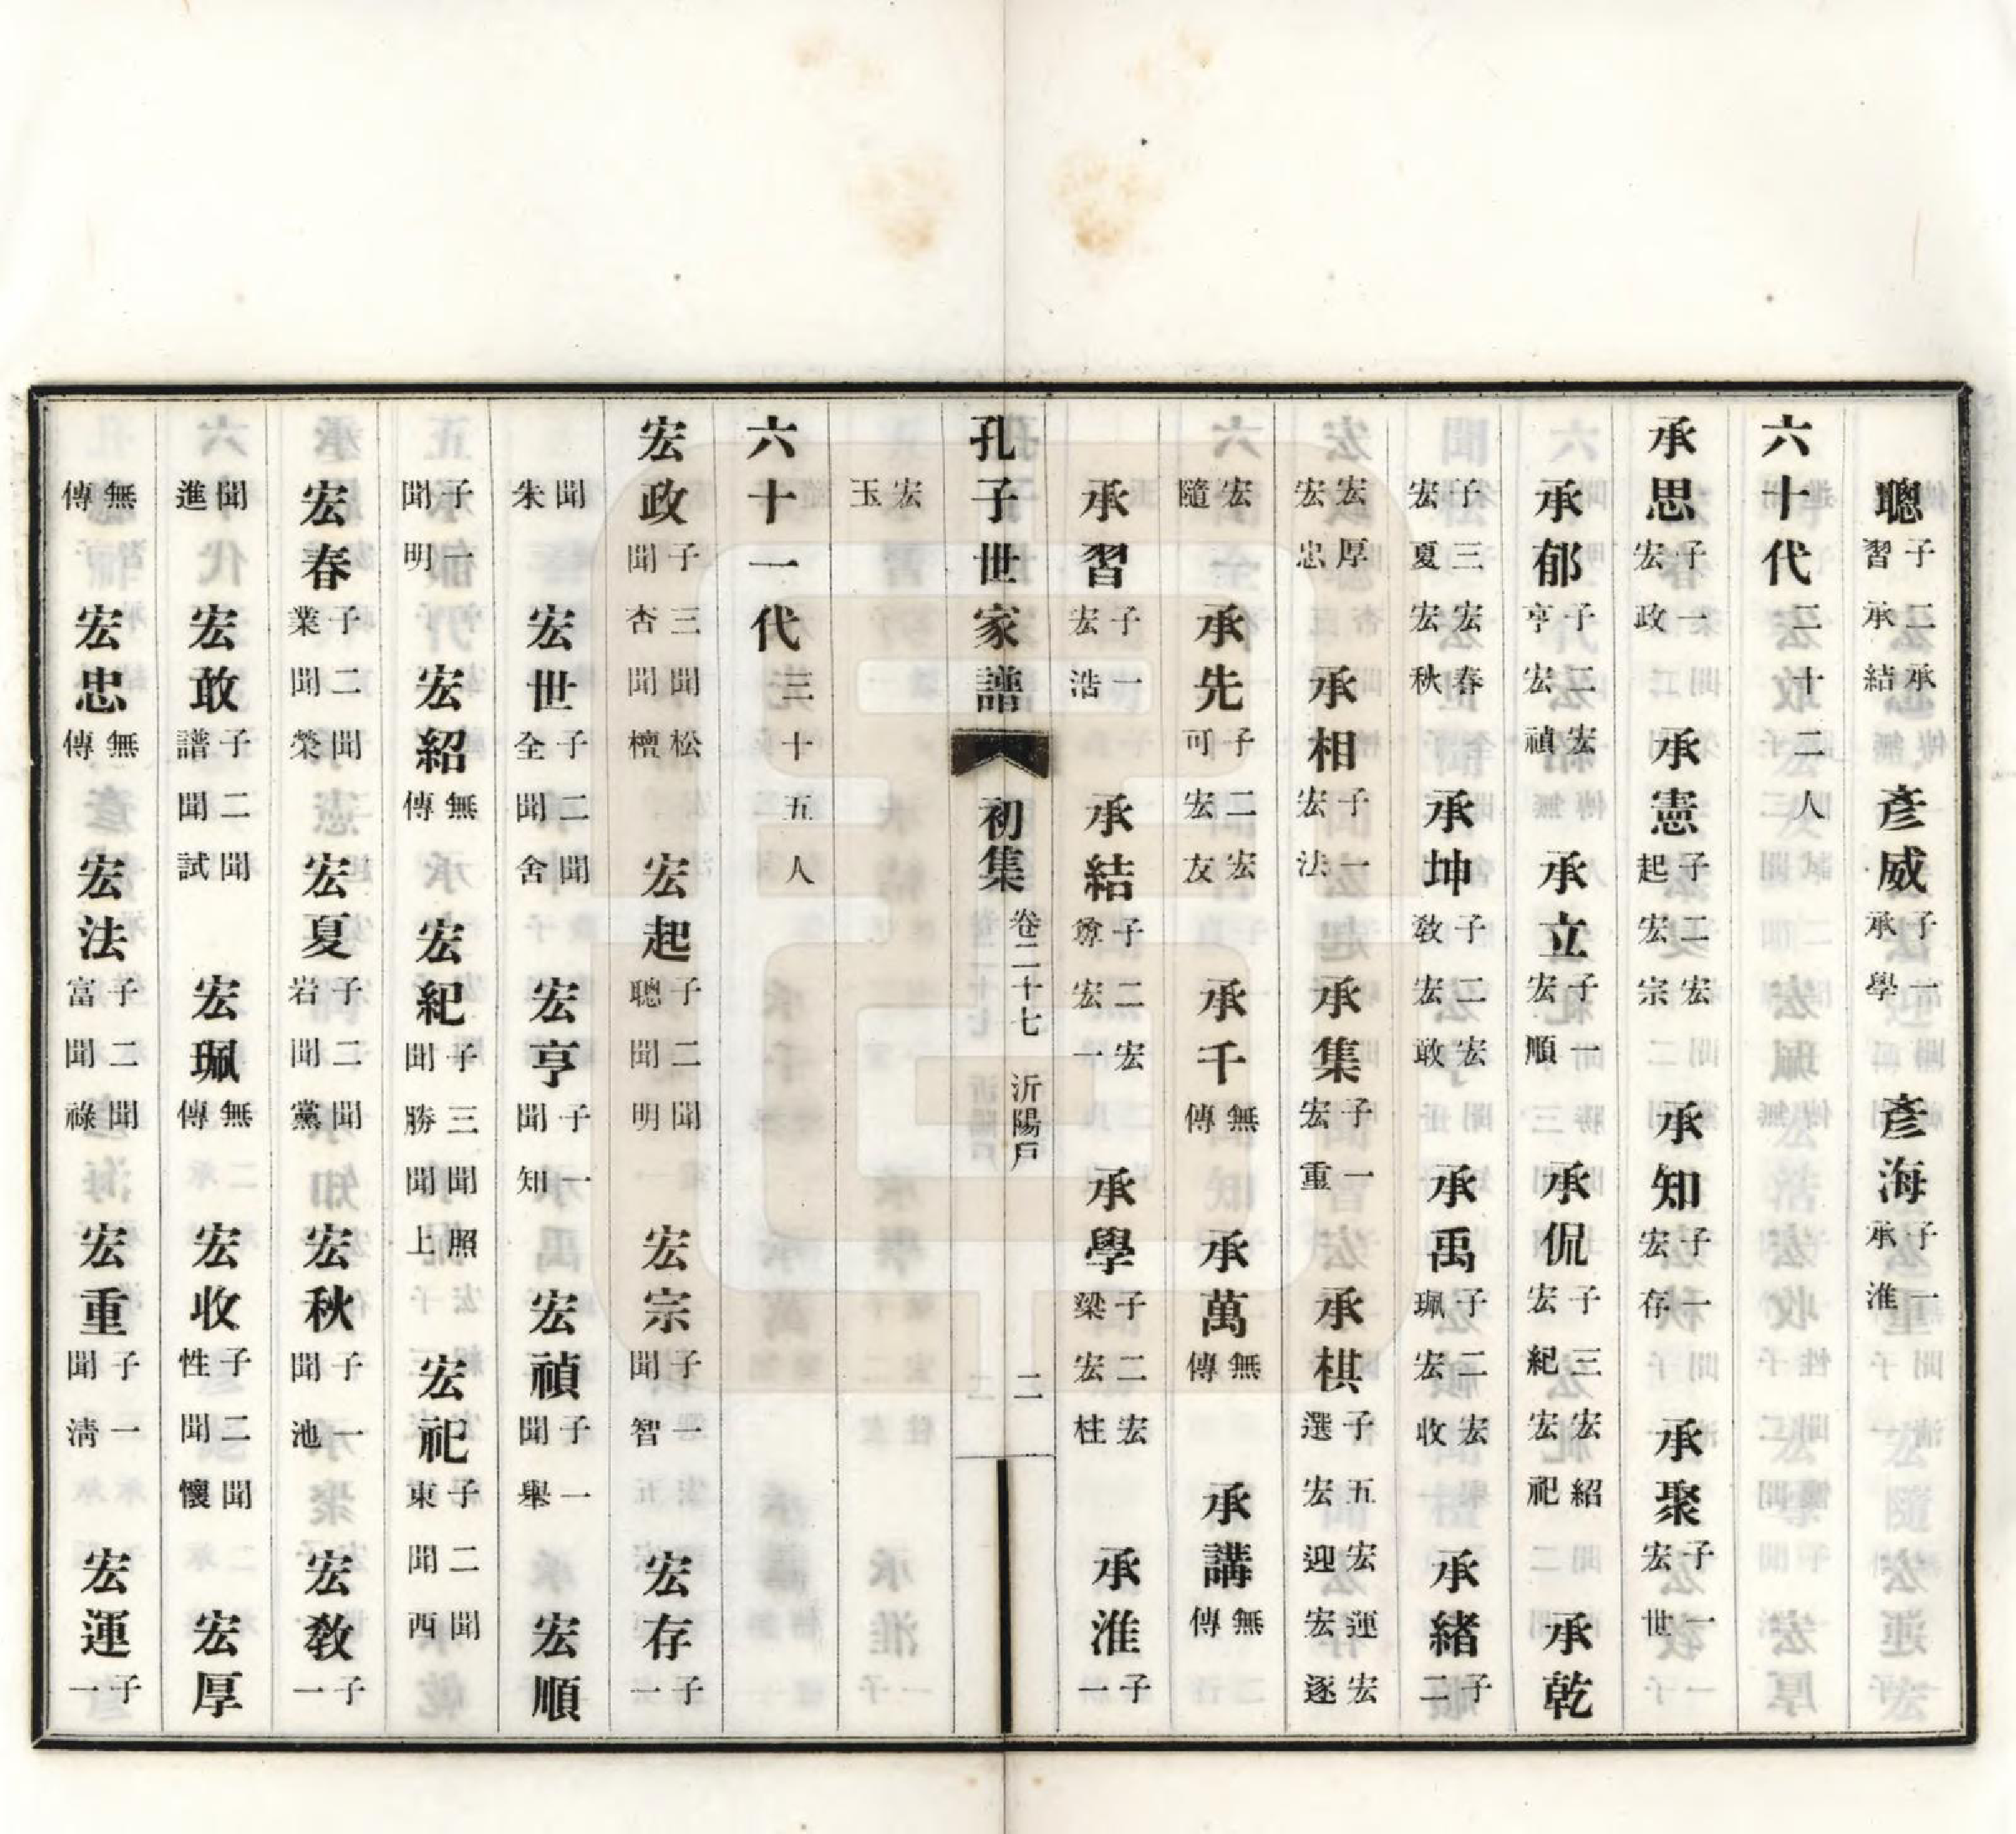 聰子二承習承結彥威子一承學彥海子一承淮
六十代三十二人
承思子一宏政承憲子二宏起宏宗承知子一宏存承聚子一宏世
承郁子二宏亨宏禎承立子一宏順承侃子三宏紹宏紀宏祀承乾
子三宏春宏夏宏秋承坤子二宏敎宏敢承禹子二宏珮宏收承緒子二
宏厚宏忠承相子一宏法承集子一宏重承棋子五宏運宏選宏迎宏逐
宏隨承先子二宏可宏友承千無傳承萬無傳承講無傳
承習子一宏浩承結子二宏尊宏一承學子二宏梁宏桂承淮子一
孔子世家譜 初集 卷二十七 沂陽戶 二
宏玉
六十一代三十五人
宏政子三聞松聞杏聞檀宏起子二聞聰聞明宏宗子一聞智宏存子一
聞朱宏世子二聞全聞舍宏亨子一聞知宏禎子一聞舉宏順
子一聞明宏紹無傳宏紀子三聞照聞勝聞上宏祀子二聞東聞西
宏春子二聞業聞榮宏夏子二聞岩聞黨宏秋子一聞池宏敎子一
聞進宏敢子二聞譜聞試宏珮無傳宏收子二聞性聞懷宏厚
無傳宏忠無傳宏法子二聞富聞祿宏重子一聞清宏運子一